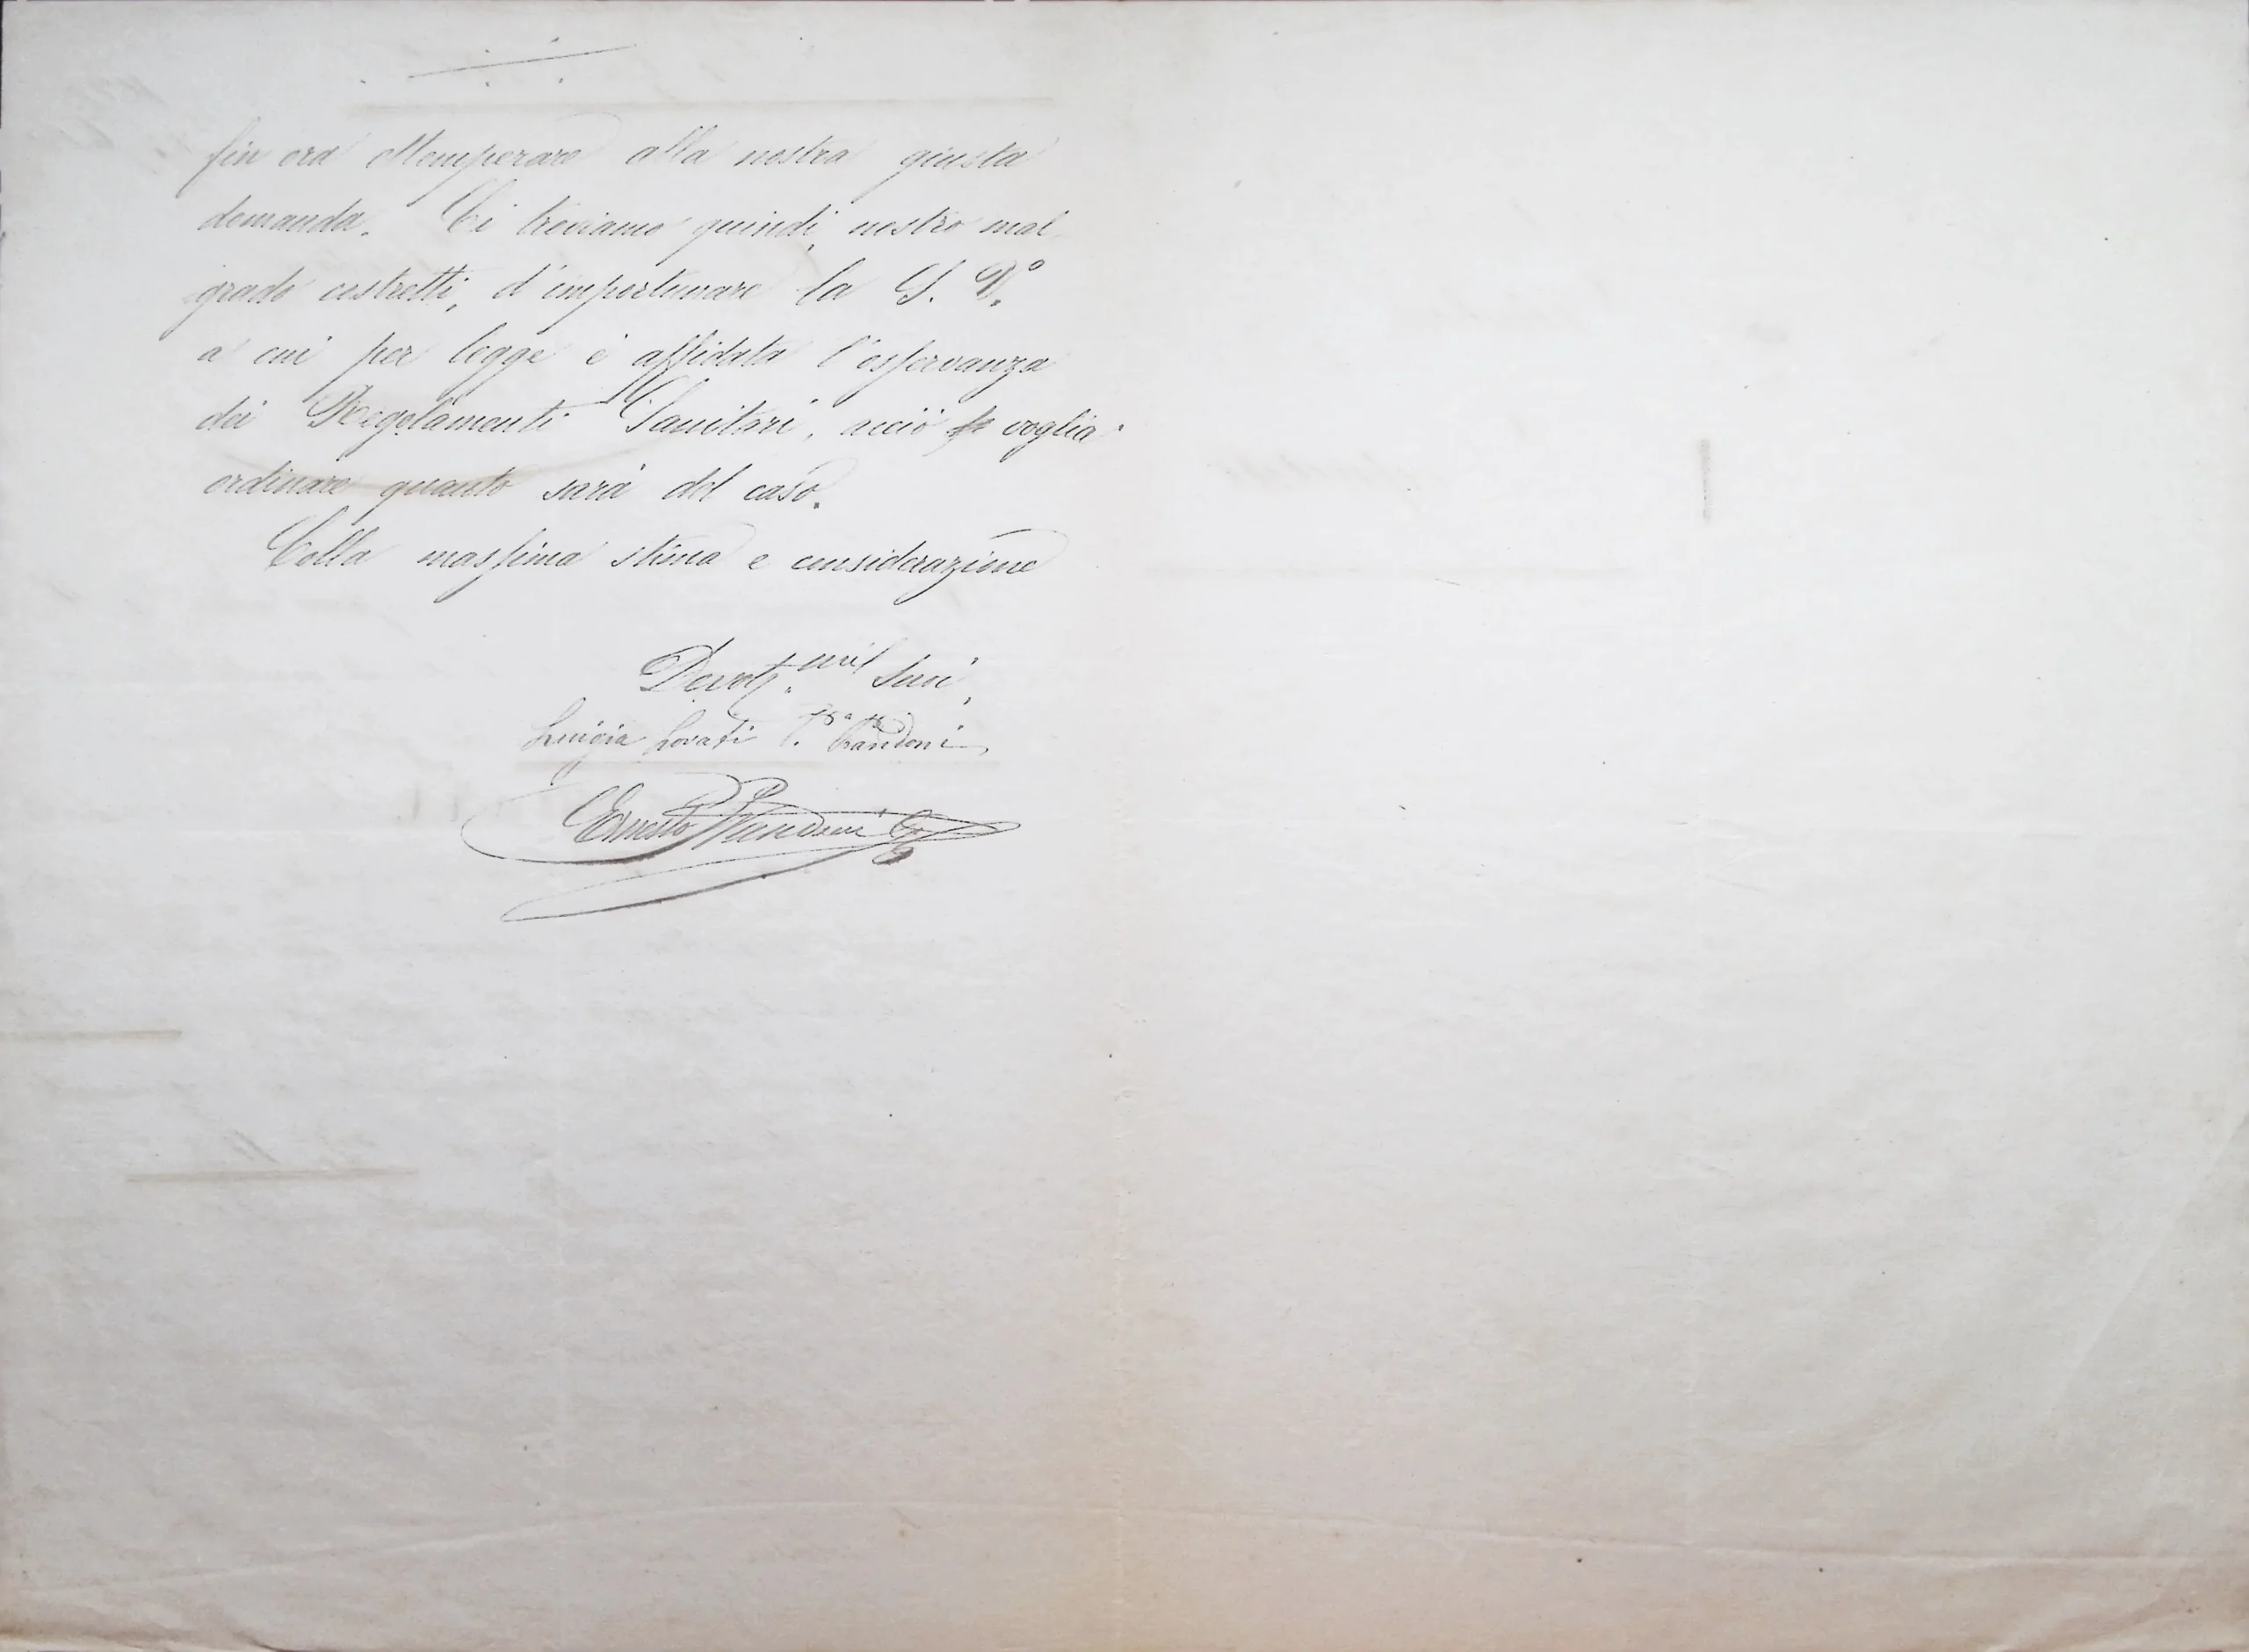 fin ora ottemperare alla nostra giusta
domanda. Ci troviamo quindi, nostro mal
grado costretti, d'importunare la S. V.
a cui per legge è affidata l'osservanza
dei Regolamenti Sanitari, acciò voglia
ordinare quanto sarà del caso.
Colla massima stima e considerazione
Devot.mi Suoi,
Luigia Lovati Prandoni
Ernesto Prandoni